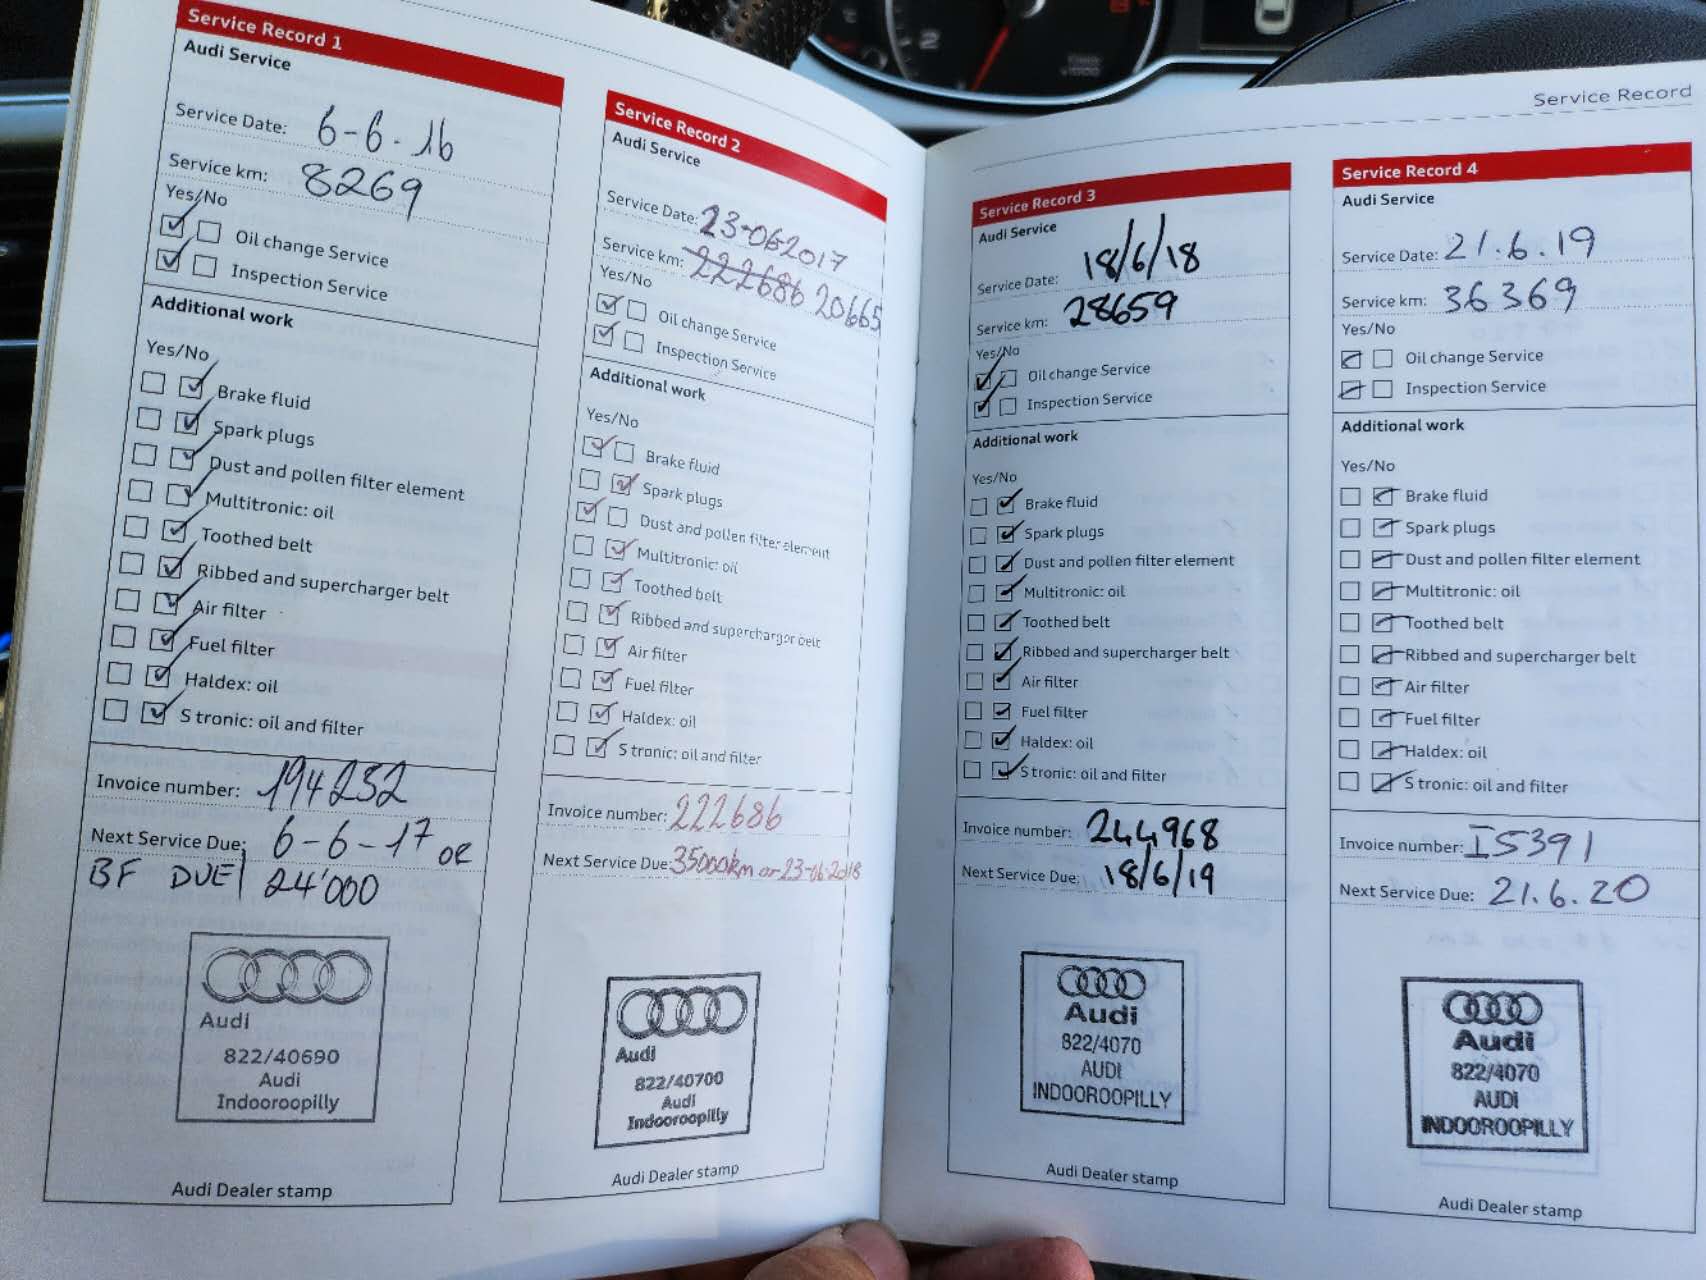 Service Record 1
Audi Service
Service Date: 6-6-16
Service km: 8269
Yes/No
Oil change Service
Inspection Service
Additional work
Yes/No
Brake fluid
Spark plugs
Dust and pollen filter element
Multitronic: oil
Toothed belt
Ribbed and supercharger belt
Air filter
Fuel filter
Haldex: oil
S tronic: oil and filter
Invoice number: 194252
Next Service Due: 6-6-17 or
BF DUE 24'000
Audi
822/40690
Audi
Indooroopilly
Audi Dealer stamp
Service Record 2
Audi Service
Service Date: 23-06-2017
Service km: 222686 20665
Yes/No
Oil change Service
Inspection Service
Additional work
Yes/No
Brake fluid
Spark plugs
Dust and pollen filter element
Multitronic: oil
Toothed belt
Ribbed and supercharger belt
Air filter
Fuel filter
Haldex: oil
S tronic: oil and filter
Invoice number: 222686
Next Service Due: 35000km or 23-06-2018
Audi
822/40700
Audi
Indooroopilly
Audi Dealer stamp
Service Record
Service Record 3
Audi Service
Service Date: 18/6/18
Service km: 28659
Yes/No
Oil change Service
Inspection Service
Additional work
Yes/No
Brake fluid
Spark plugs
Dust and pollen filter element
Multitronic: oil
Toothed belt
Ribbed and supercharger belt
Air filter
Fuel filter
Haldex: oil
S tronic: oil and filter
Invoice number: 244968
Next Service Due: 18/6/19
Audi
822/4070
AUDI
INDOOROOPILLY
Audi Dealer stamp
Service Record 4
Audi Service
Service Date: 21.6.19
Service km: 36369
Yes/No
Oil change Service
Inspection Service
Additional work
Yes/No
Brake fluid
Spark plugs
Dust and pollen filter element
Multitronic: oil
Toothed belt
Ribbed and supercharger belt
Air filter
Fuel filter
Haldex: oil
S tronic: oil and filter
Invoice number: I5391
Next Service Due: 21.6.20
Audi
822/4070
AUDI
INDOOROOPILLY
Audi Dealer stamp
2